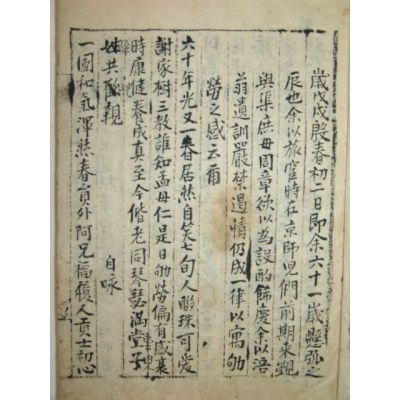 歲戊戌殷春初二日即余六十一歲懸弧之
辰也余以旅窓時在京師児們前期来覲
與渠庶母周章欲以為設酌飾慶余以浯
翁遺訓嚴禁遏情仍成一律以寓劬
勞之感云爾
六十年光又一春居然自笑七旬人聯珠可愛
謝家樹三教誰知孟母仁是日劬勞偏有感衰
時康健養成真至今偕老同琴瑟滿堂子
姓共親
自咏
一團和氣渾然春員外阿兄福履人貢士初心